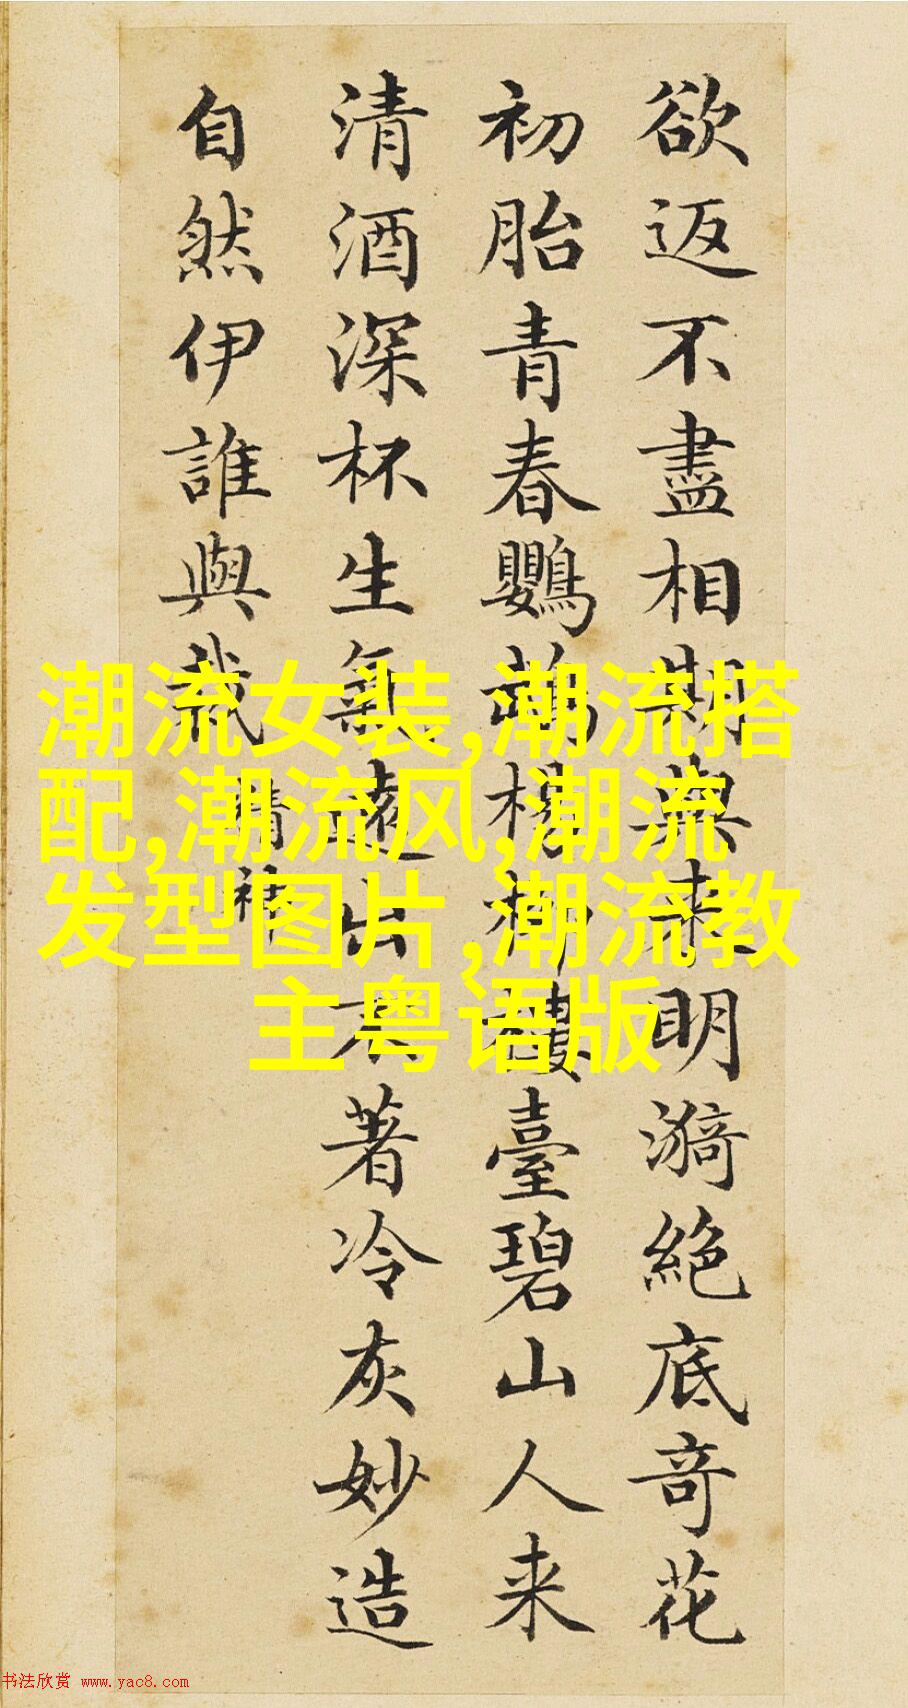 欲返不盡相期與来明漪絕底奇花
初胎青春鸚鵡楊柳樓臺碧山人来
清酒深杯生氣遠出不著冷灰妙造
自然伊誰與裁
精神
潮流女装,潮流搭
配,潮流风,潮流
发型图片,潮流教
主粤语版
书法欣赏 www.yac8.com